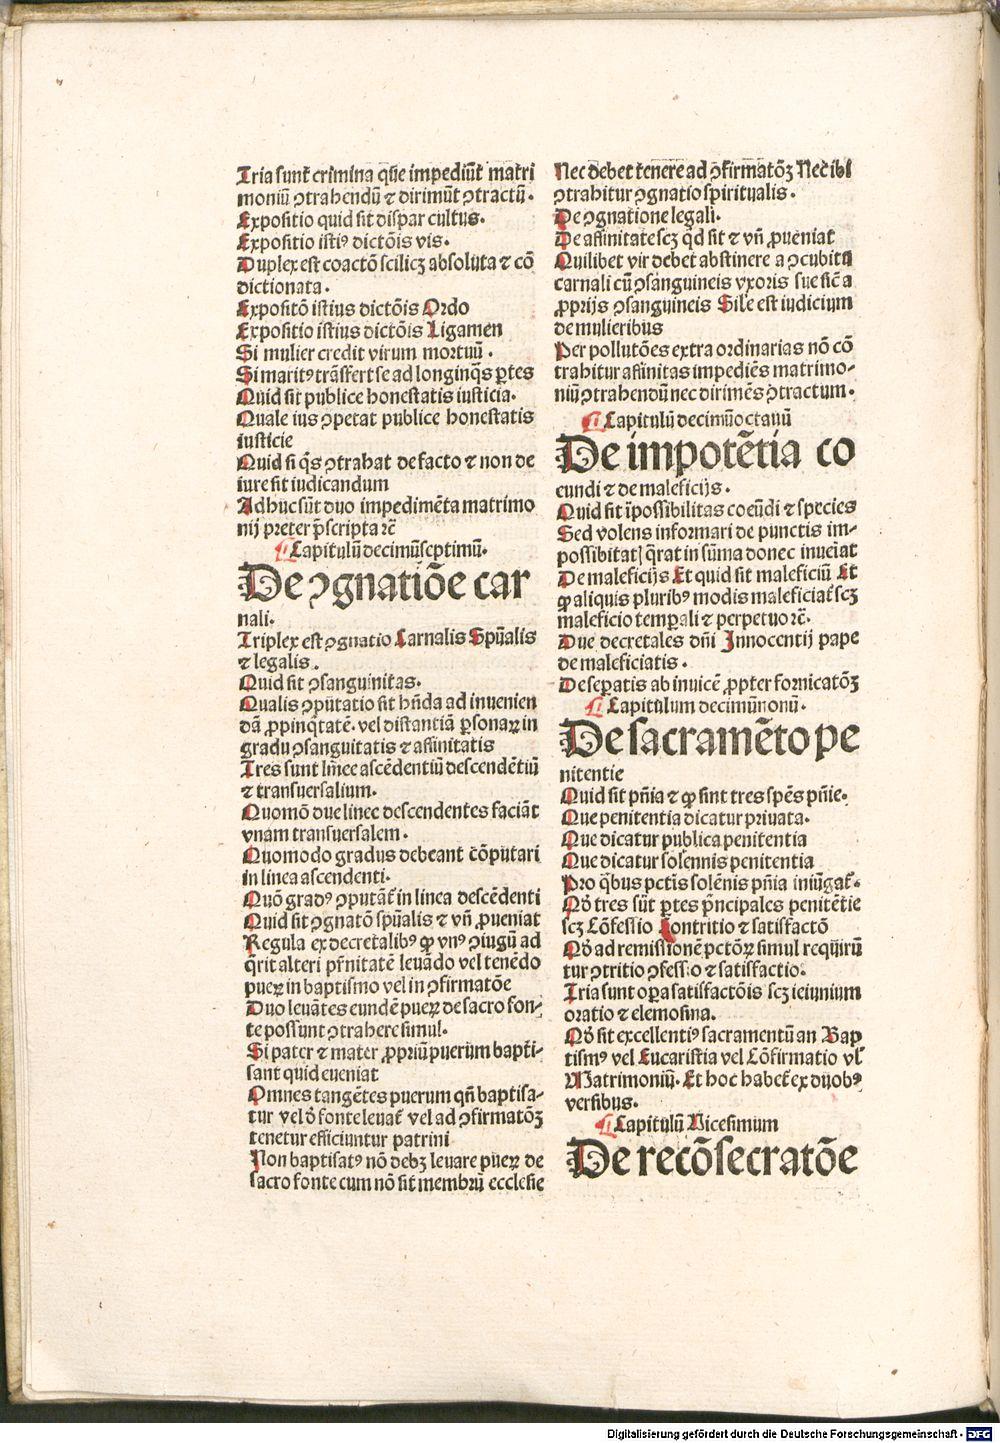 Tria sunt̄ crimina qͥe impediūt matri
moniū ꝯtrahendū ⁊ dirimūt ꝯtractū.
Expositio quid sit dispar cultus.
Expositio istiꝰ dictōis vis.
Duplex est coactō scilicꝫ absoluta ⁊ cō
dictionata.
Expositō istius dictōis Ordo
Expositio istius dictōis Ligamen
Si mulier credit virum mortuū.
Si maritꝰ trāsfert se ad longinq̄s ꝑtes
Quid sit publice honestatis iusticia.
Quale ius ꝯpetat publice honestatis
iusticie
Quid si q̄s ꝯtrahat de facto ⁊ non de
iure sit iudicandum
Adhuc sūt duo impedimēta matrimo
nij preter p̄scripta rc̄
¶ Capitulū decimūseptimū.
De ꝯgnatiōe car
nali.
Triplex est ꝯgnatio Carnalis Spūalis
⁊ legalis.
Quid sit ꝯsanguinitas.
Qualis ꝯputatio sit hn̄da ad inuenien
dā ꝓpinq̄tatē. vel distantiā ꝑsonaꝝ in
gradu ꝯsanguitatis ⁊ affinitatis
Tres sunt lin̄ee ascēdentiū descendētiū
⁊ transuersalium.
Quomō due linee descendentes faciāt
vnam transuersalem.
Quomodo gradus debeant cōputari
in linea ascendenti.
Quō gradꝰ ꝯputāt̄ in linea descēdenti
Quid sit ꝯgnatō spūalis ⁊ vn̄ ꝓueniat
Regula ex decretalibꝰ ꝙ vnꝰ ꝯiugū ad
q̄rit alteri pr̄nitatē leuādo vel tenēdo
pueꝝ in baptismo vel in ꝯfirmatōe
Duo leuātes eundē pueꝝ de sacro fon-
te possunt ꝯtrahere simul.
Si pater ⁊ mater ꝓpriū puerum bapti-
sant quid eueniat
Omnes tangētes puerum qn̄ baptisa-
tur vel d̄ fonte leuat̄ vel ad ꝯfirmatōꝫ
tenetur efficiuntur patrini
Non baptisatꝰ nō debꝫ leuare pueꝝ de
sacro fonte cum nō sit̄ membrū ecclesie
Nec debet tenere ad ꝯfirmatōꝫ Nec̄ ibi
ꝯtrahitur ꝯgnatio spiritualis.
De ꝯgnatione legali.
De affinitate scꝫ qd̄ sit ⁊ vn̄ ꝓueniat
Quilibet vir debet abstinere a ꝯcubitu
carnali cū ꝯsanguineis vxoris sue sic̄ a
ꝓprijs ꝯsanguineis Sil̄e est iudicium
de mulieribus
Per pollutōes extra ordinarias nō cō
trahitur affinitas impediēs matrimo-
niū ꝯtrahendū nec dirimēs ꝯtractum.
¶ Capitulū decimūoctauū
De impotētia co
eundi ⁊ de maleficijs.
Quid sit īpossibilitas coeūdi ⁊ species
Sed volens informari de punctis im-
possibitat) q̄rat in sūma donec inueīat
De maleficijs Et quid sit maleficiū Et
ꝙ aliquis pluribꝰ modis maleficiat̄ scꝫ
maleficio temꝑali ⁊ perpetuo rc̄.
Due decretales dn̄i Innocentij pape
de maleficiatis.
De seꝑatis ab inuicē ꝓpter fornicatōꝫ
¶ Capitulum decimūnonū.
De sacramēto pe
nitentie
Quid sit pn̄ia ⁊ ꝙ sint tres spēs pn̄ie.
Que penitentia dicatur priuata.
Que dicatur publica penitentia
Que dicatur solennis penitentia
Pro q̄bus pctīs solēnis pn̄ia iniūgat̄.
Qd̄ tres sūt ꝑtes p̄ncipales penitētie
scꝫ Cōfessio Contritio ⁊ satisfactō
Qd̄ ad remissionē pctōꝝ simul requirū
tur ꝯtritio ꝯfessio ⁊ satisfactio.
Tria sunt oꝑa satisfactōis scꝫ ieiunium
oratio ⁊ elemosina.
Qd̄ sit excellentiꝰ sacramentū an Bap
tismꝰ vel Eucaristia vel Cōfirmatio vl̄
Matrimoniū. Et hoc habet̄ ex duobꝰ
versibus.
¶ Capitulū Vicesimum
De recōsecratōe
Digitalisierung gefördert durch die Deutsche Forschungsgemeinschaft - DFG